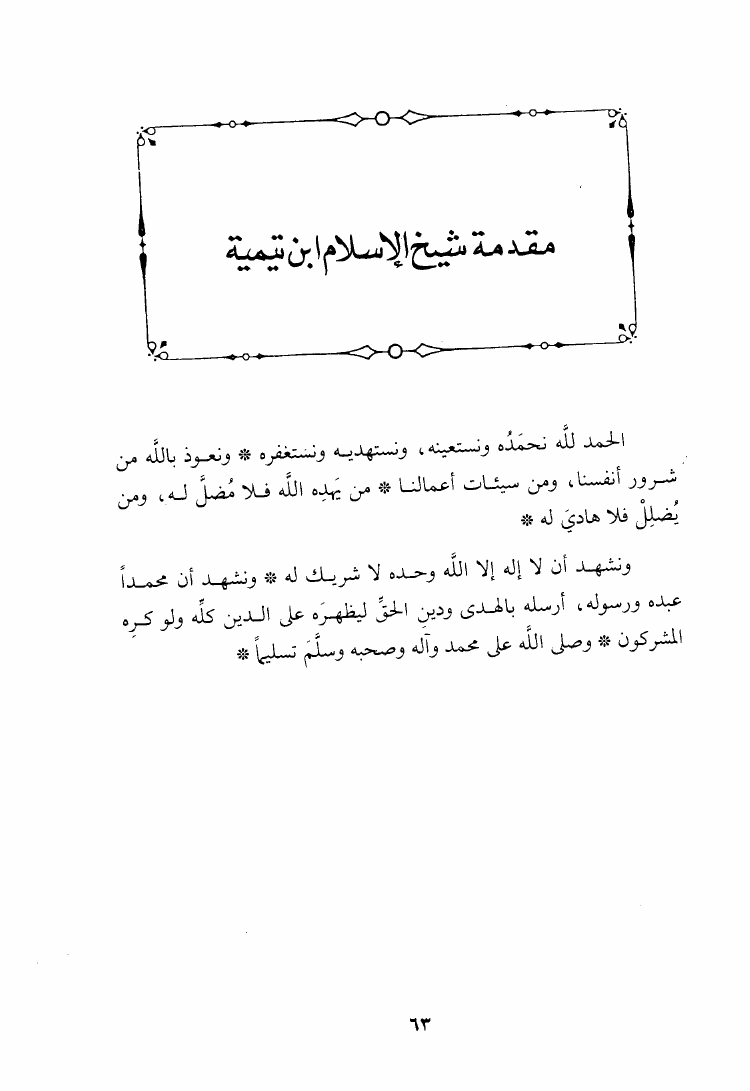 مقدمة شيخ الإسلام ابن تيمية
الحمد للَّه نحمَدُه ونستعينه، ونستهديـه ونستغفره * ونعـوذ باللَّه من
شـرور أنفسنا، ومن سيئـات أعمالنـا * من يَهدِه اللَّه فـلا مُضلَّ لـه، ومن
يُضلِلْ فلا هاديَ له *
ونشهـد أن لا إله إلا اللَّه وحـده لا شريـك له * ونشهـد أن محمـداً
عبده ورسوله، أرسله بالهـدى ودينِ الحقِّ ليظهـرَه على الـدين كلِّه ولو كـرِه
المشركون * وصلى اللَّه على محمد وآله وصحبه وسلَّمَ تسليماً *
٦٣